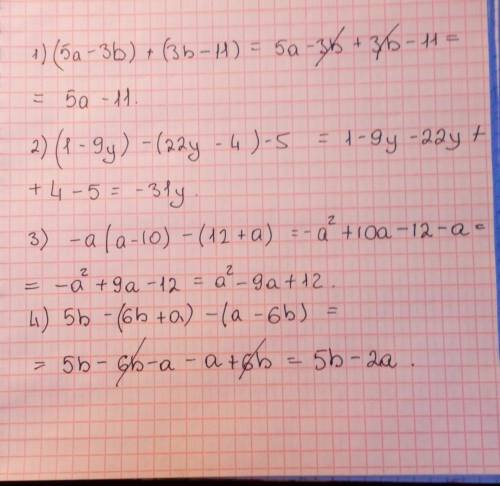 1) (5a-3b) + (3b-11) = 5a-3b + 3b-11 =
= 5a-11.
2) (1-9y) -(22y -4)-5 = 1-9y-22y+
+4-5 = -31y.
3) -a(a-10) -(12+a) =-a²+10a-12-a=
= -a²+9a-12 = a²-9a+12.
4) 5b -(6b+a) -(a-6b) =
= 5b-6b-a-a+6b = 5b-2a.